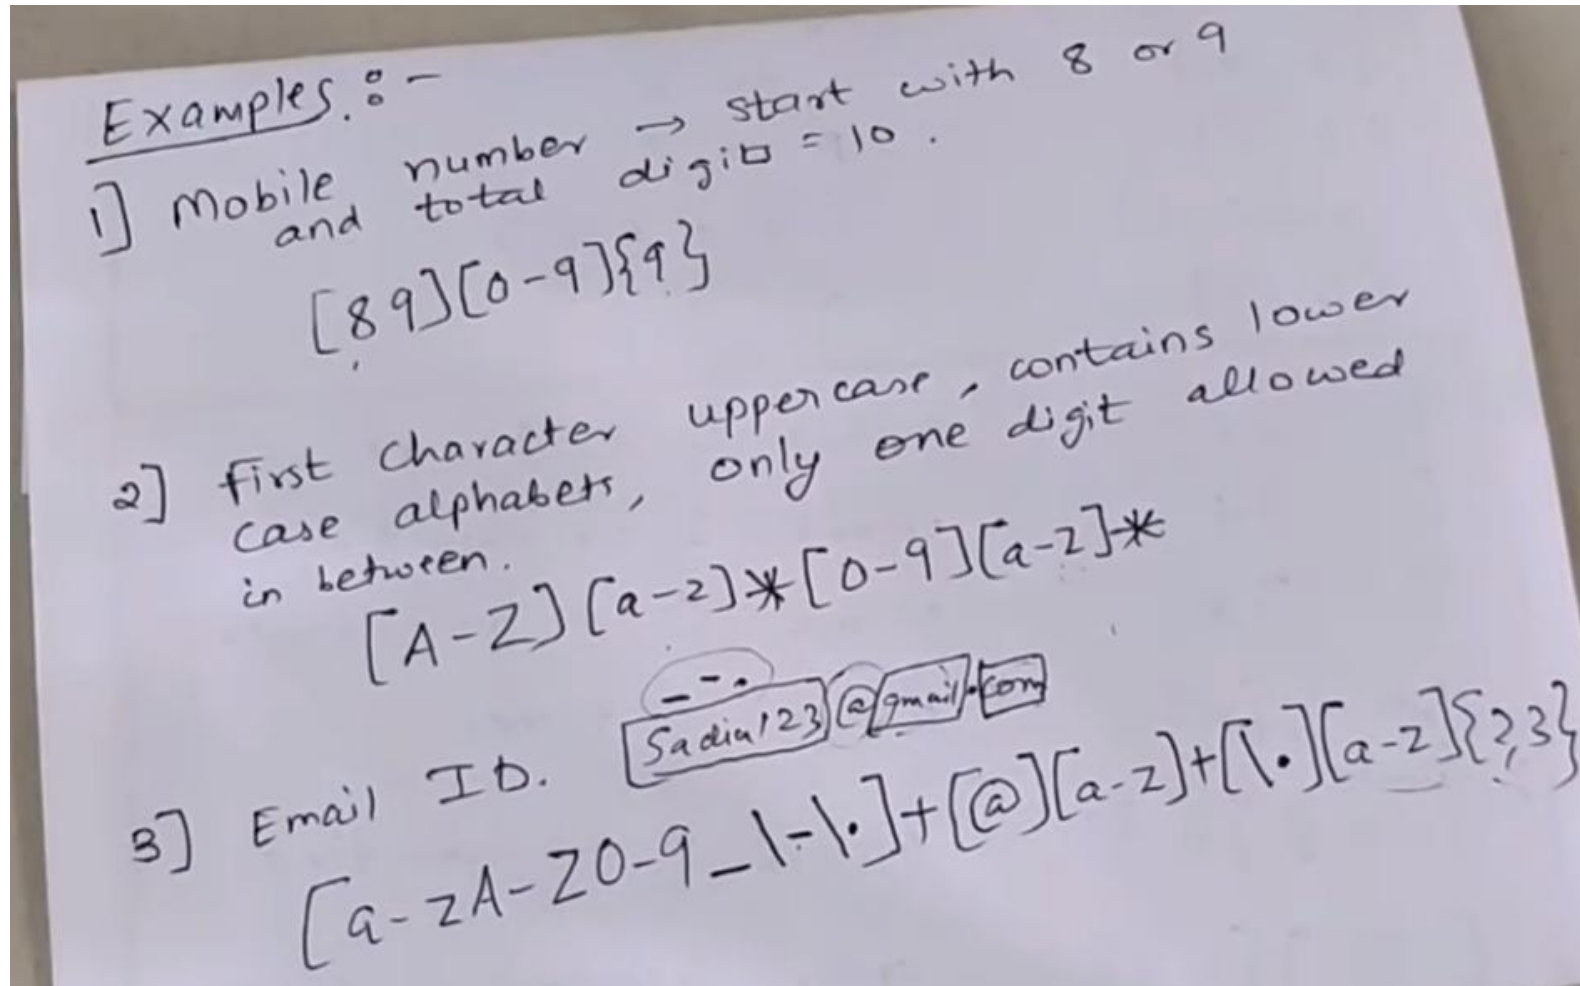 Examples :-
1] Mobile number → start with 8 or 9
and total digits = 10 .
[89][0-9]{9}
2] First character uppercase, contains lower
case alphabets, only one digit allowed
in between.
[A-Z][a-z]*[0-9][a-z]*
_ - .
3] Email ID. Sadia123 @ gmail . com
[a-zA-Z0-9_\-\.]+[@][a-z]+[\.][a-z]{2,3}